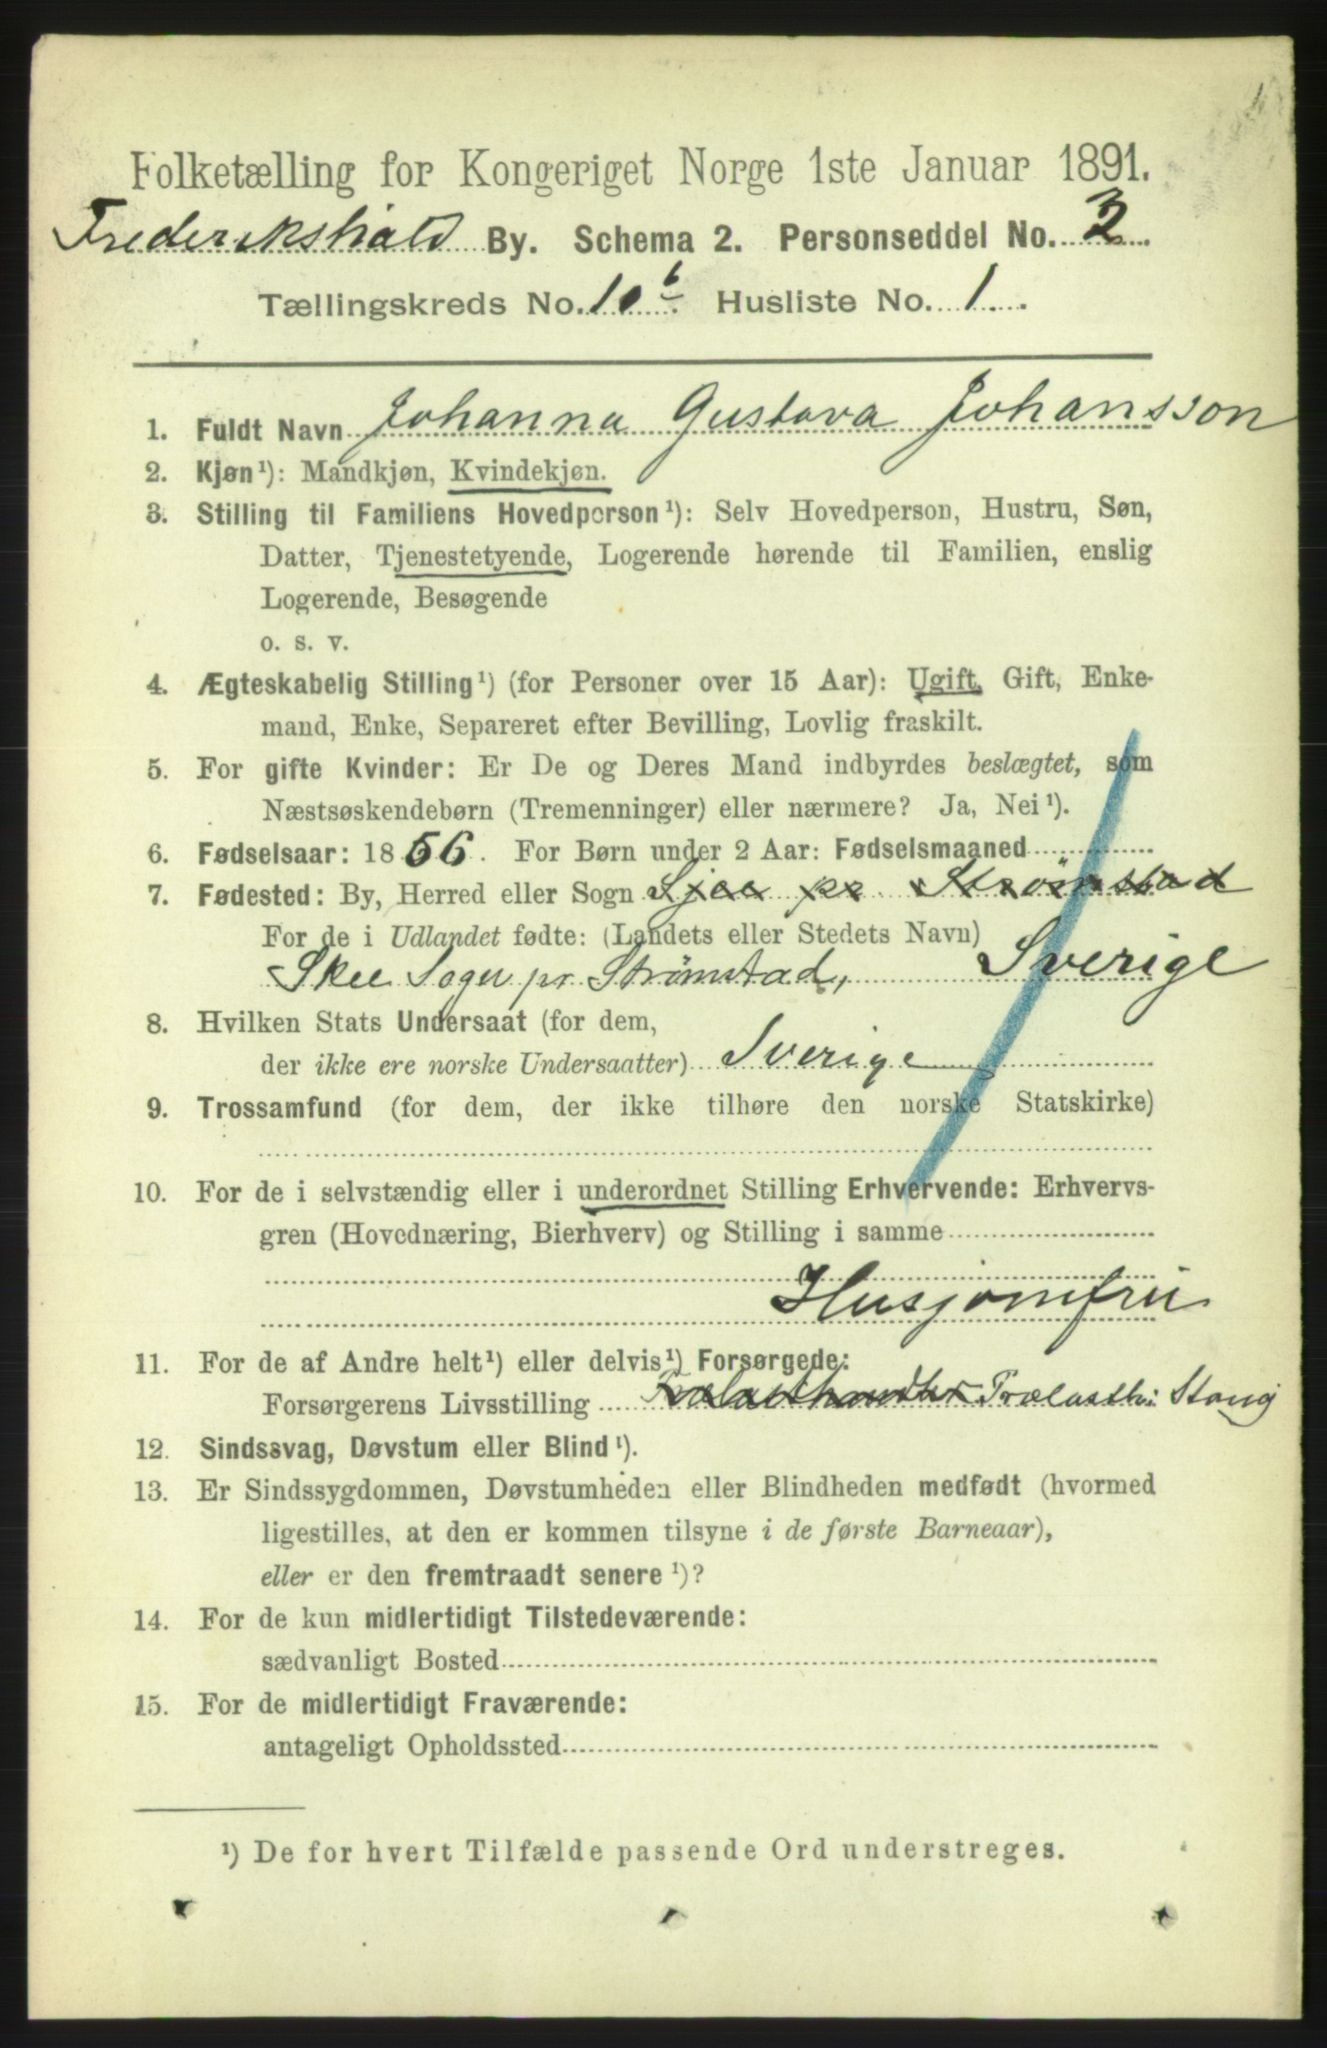 Folketælling for Kongeriget Norge 1ste Januar 1891.
Frederikshald By. Schema 2. Personseddel No. 3
Tællingskreds No. 10b. Husliste No. 1.
1. Fuldt Navn Johanna Gustava Johansson
2. Kjøn¹): Mandkjøn, Kvindekjøn.
3. Stilling til Familiens Hovedperson¹): Selv Hovedperson, Hustru, Søn,
Datter, Tjenestetyende, Logerende hørende til Familien, enslig
Logerende, Besøgende
o. s. v.
4. Ægteskabelig Stilling¹) (for Personer over 15 Aar): Ugift, Gift, Enke-
mand, Enke, Separeret efter Bevilling, Lovlig fraskilt.
5. For gifte Kvinder: Er De og Deres Mand indbyrdes beslægtet, som
Næstsøskendebørn (Tremenninger) eller nærmere? Ja, Nei¹).
6. Fødselsaar: 1866. For Børn under 2 Aar: Fødselsmaaned
7. Fødested: By, Herred eller Sogn Sjee pr Strömstad
For de i Udlandet fødte: (Landets eller Stedets Navn)
Skee Sogn pr Strømstad, Sverige
8. Hvilken Stats Undersaat (for dem,
der ikke ere norske Undersaatter) Sverige
9. Trossamfund (for dem, der ikke tilhøre den norske Statskirke)
10. For de i selvstændig eller i underordnet Stilling Erhvervende: Erhvervs-
gren (Hovednæring, Bierhverv) og Stilling i samme
Husjomfru
11. For de af Andre helt¹) eller delvis¹) Forsørgede:
Forsørgerens Livsstilling Trælasthandler Trælasth: Stang
12. Sindssvag, Døvstum eller Blind¹).
13. Er Sindssygdommen, Døvstumheden eller Blindheden medfødt (hvormed
ligestilles, at den er kommen tilsyne i de første Barneaar),
eller er den fremtraadt senere¹)?
14. For de kun midlertidigt Tilstedeværende:
sædvanligt Bosted
15. For de midlertidigt Fraværende:
antageligt Opholdssted
¹) De for hvert Tilfælde passende Ord understreges.